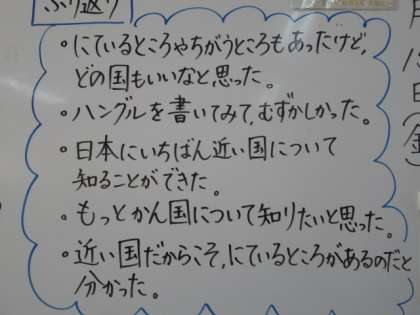 ふり返り
・にているところやちがうところもあったけど,
どの国もいいなと,思った。
・ハングルを書いてみて,むずかしかった。
・日本にいちばん近い国について
知ることができた。
・もっとかん国について知りたいと思った。
・近い国だからこそ,にているところがあるのだと
分かった。